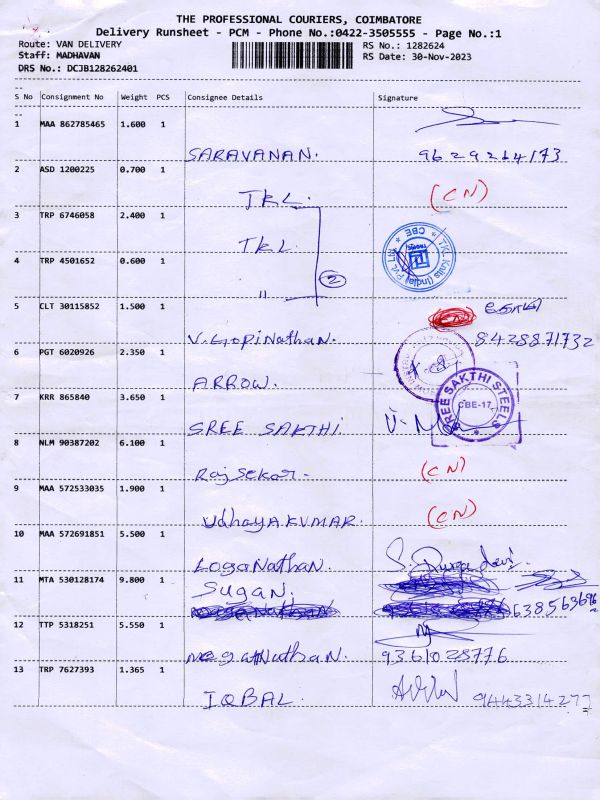 THE PROFESSIONAL COURIERS, COIMBATORE
Delivery Runsheet - PCM - Phone No.:0422-3505555 - Page No.:1
Route: VAN DELIVERY RS No.: 1282624
Staff: MADHAVAN RS Date: 30-Nov-2023
DRS No.: DCJB128262401
S No Consignment No Weight PCS Consignee Details Signature
1 MAA 862785465 1.600 1
SARAVANAN. 9629264173
2 ASD 1200225 0.700 1
TKL. (CN)
3 TRP 6746058 2.400 1
TKL
TKL Knits (India) Pvt. Ltd. * CBE *
4 TRP 4501652 0.600 1
" 2
5 CLT 30115852 1.500 1
V. Gopinathan. 8428871732
6 PGT 6020926 2.350 1
ARROW.
7 KRR 865840 3.650 1
SREE SAKTHI STEELS
CBE-17
SREE SAKTHI
8 NLM 90387202 6.100 1
Rajsekar- (CN)
9 MAA 572533035 1.900 1
UdhayaKUMAR. (CN)
10 MAA 572691851 5.500 1
LogaNathan. S. Durga devi
11 MTA 530128174 9.800 1
SUGAN.
12 TTP 5318251 5.550 1
MegaNathan. 9361028776
13 TRP 7627393 1.365 1
IQBAL. 9443314277